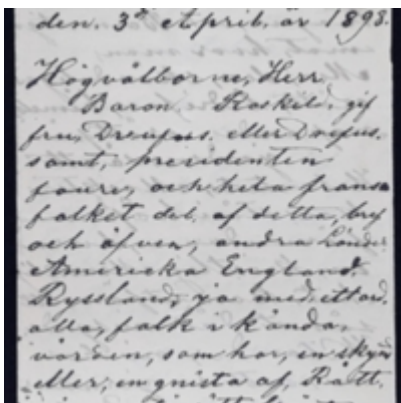 den. 3e April, år 1898.
Högvälborne, Herr
Baron. Roskild. gif
fru, Dreufus. eller Drefus.
samt, presidenten
foure, och hela fransa
folket del. af detta, bref
och äfven, andra Länder
Americka England.
Ryssland, ja med ett ord.
alla, folk i kända,
värden, som har, en skym
eller, en gnista af, Rätt.